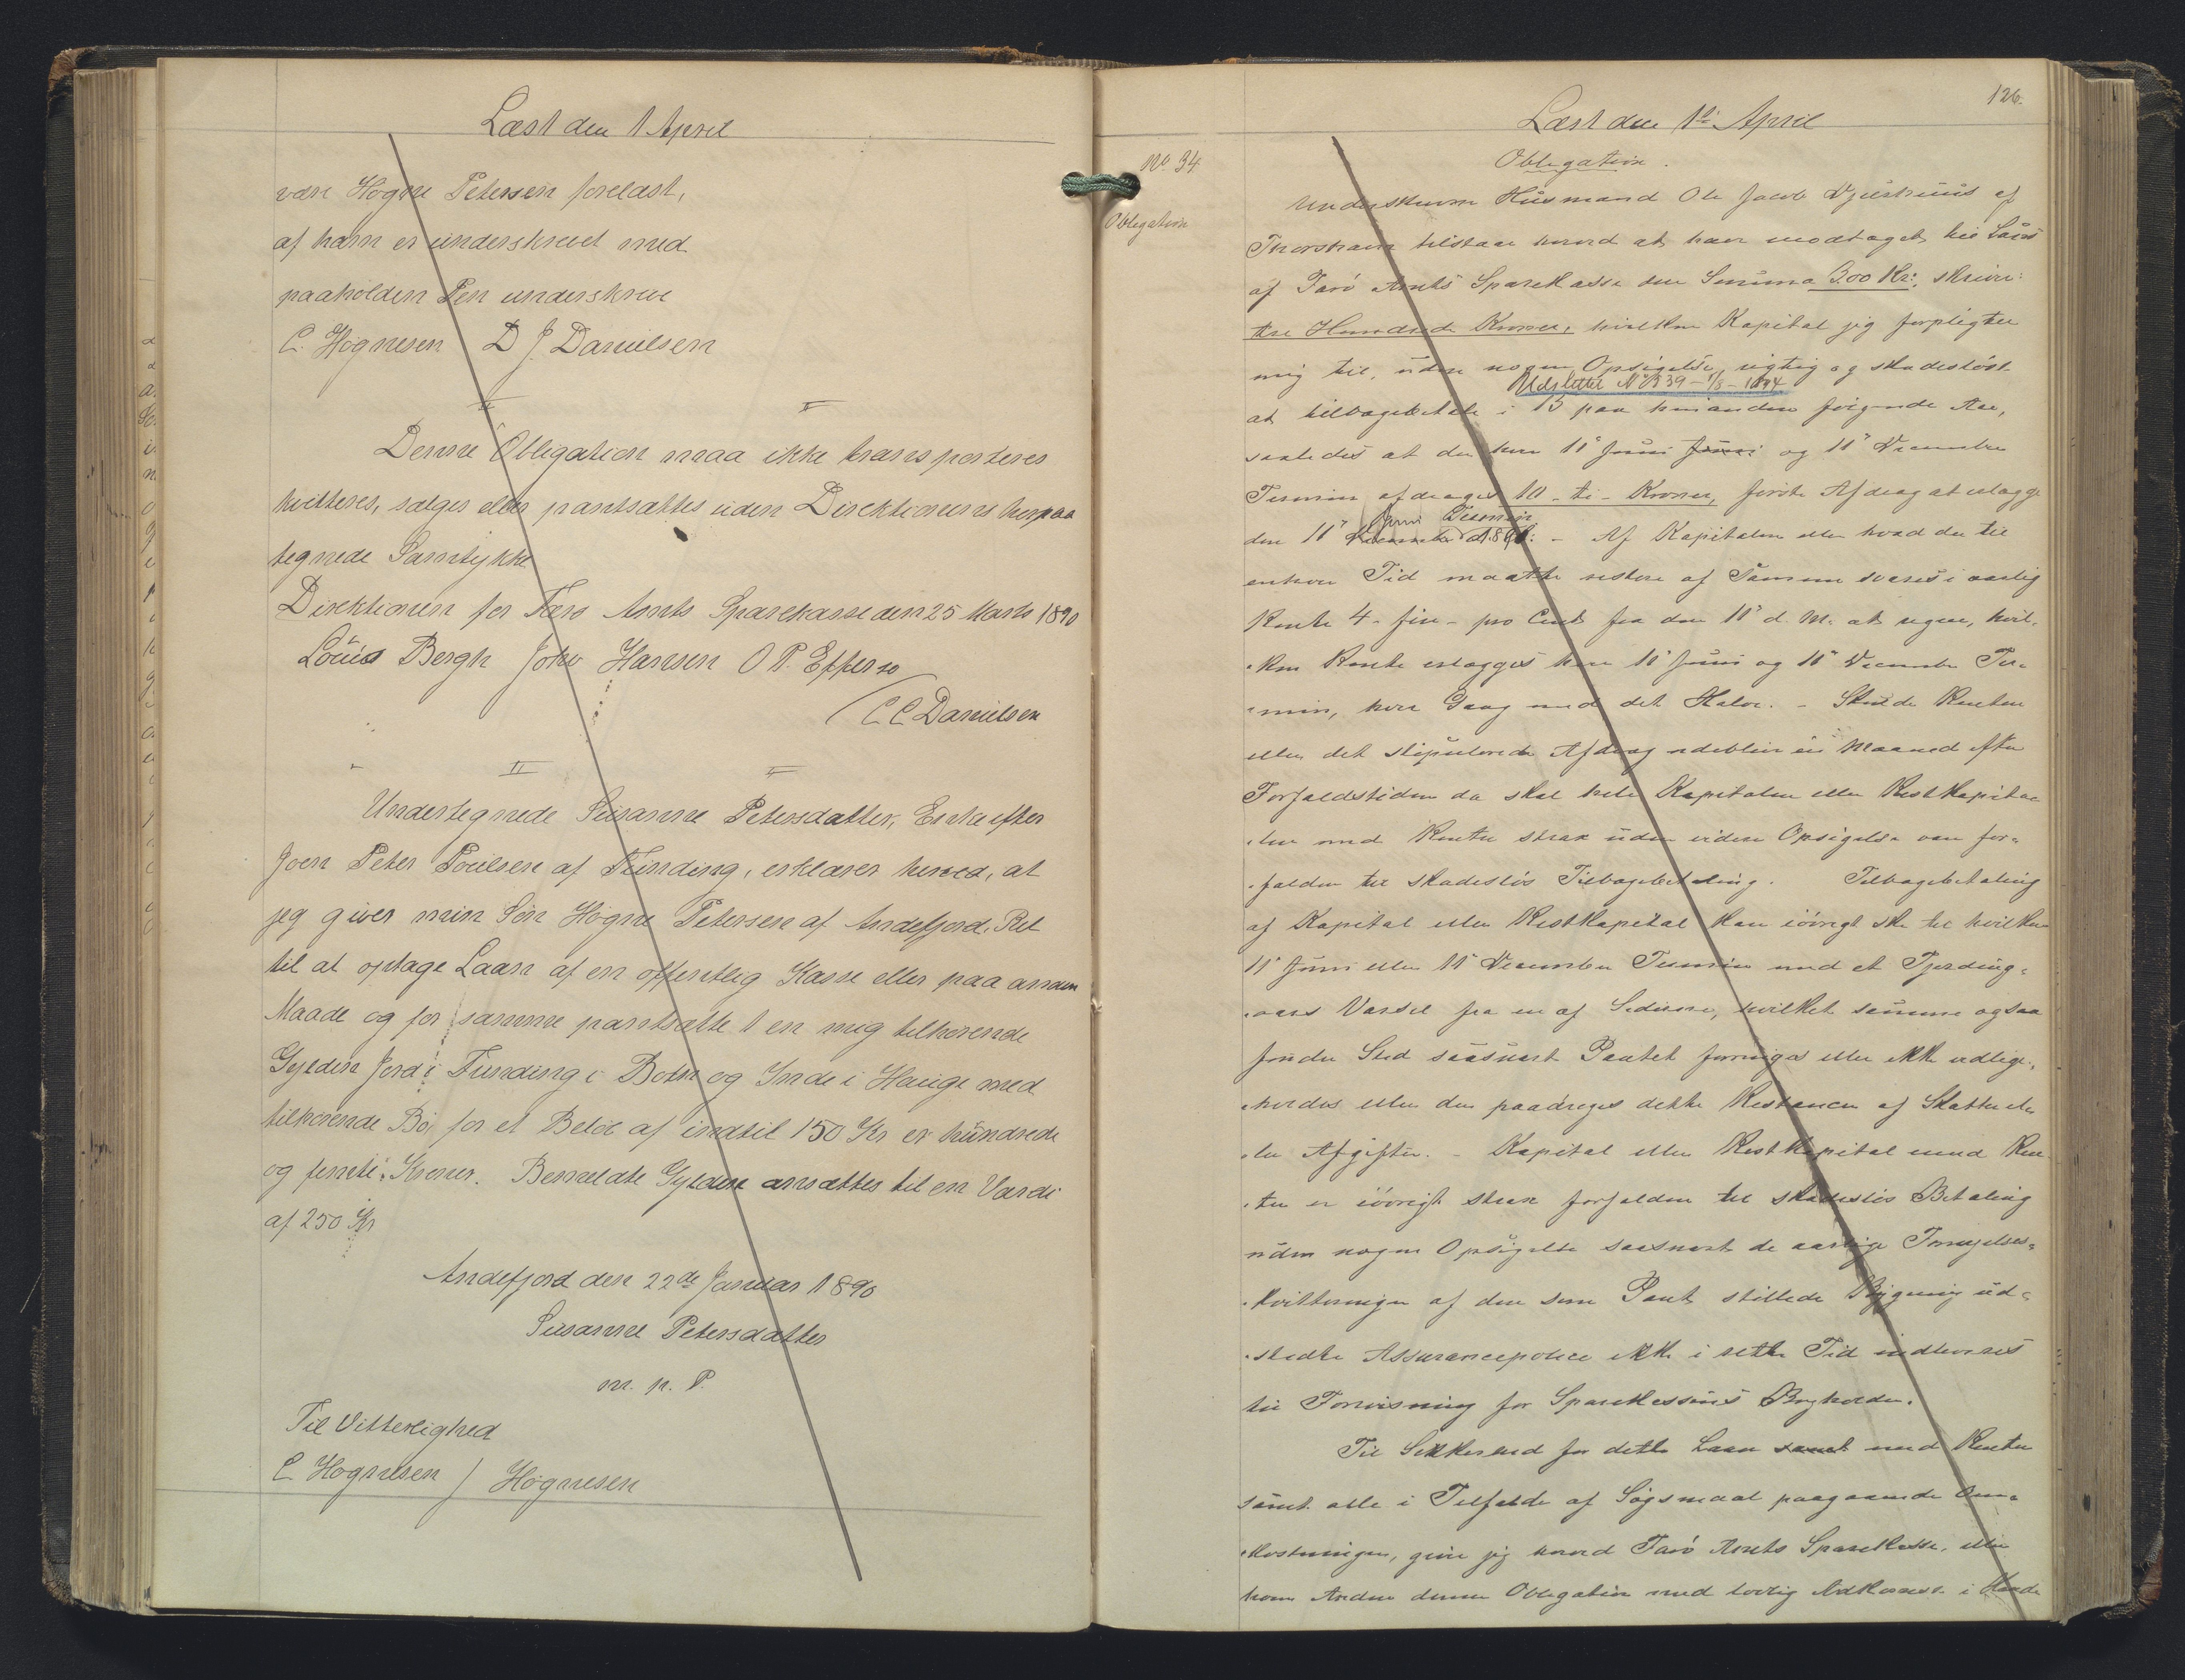 Læst den 1 April
være Høgne Petersen forelæst,
af ham er underskrevet med
paaholden Pen underskreve
C. Høgnesen D J. Danielsen
Denne Obligation maa ikke transporteres
kvitteres, sælges eller pantsættes uden Direktionens herpaa
tegnede Samtykke
Direktionen for Færø Amts Sparekasse den 25 Marts 1890
Louis Bergh John Hansen O P. Effersø
/ C C Danielsen
Undertegnede Susanne Petersdatter, Enke efter
Joen Peter Poulsen af Funding, erklærer herved, at
jeg giver min Søn Høgne Petersen af Andefjord, Ret
til at optage Laan af en offentlig Kasse eller paa anden
Maade og for samme pantsætte 1 en mig tilhørende
Gylden Jord i Funding i Botn og Inde i Hauge med
tilhørende Bø, for et Beløb af indtil 150 Kr et hundrede
og femti Kroner. Bemeldte Gylden ansættes til en Værdi
af 250 Kr
Andefjord den 22de Januar 1890
Susanne Petersdatter
m. p. P.
Til Vitterlighed
C. Høgnesen / Høgnesen
126.
Læst den 1ste April
No 34
Obligation
Obligation.
Underskrevne Husmand Ole Jacob Djurhuus af
Thorshavn tilstaar herved at have modtaget til Laans
af Færø Amts Sparekasse den Summa 300 Kr:, skriver:
tre Hundrede Kroner, hvilken Kapital jeg forpligter
mig til, uden nogen Opsigelse, rigtig og skadesløst
Udslettet No 839 - 1/8 - 1894
at tilbagebetale i 15 paa hinanden følgende Aar,
saaledes at der hver 11te Juni Juni og 11te December
Termin afdrages 10 - ti - Kroner, første Afdrag at erlægge
Juni Termin
den 11te December d. 1890. - Af Kapitalen eller hvad der til
enhver Tid maatte restere af Samme svares i aarlig
Rente 4 - fire - pro Cent fra den 11te d. M. at regne, hvil-
ken Rente erlægges hver 11te Juni og 11te December Ter-
min, hver Gang med det Halve. - Skulde Renten
eller det stipulerede Afdrag udeblive en Maaned efter
Forfaldstiden da skal hele Kapitalen eller Restkapita-
len med Renter strax uden videre Opsigelse være for-
falden til skadesløs Tilbagebetaling. Tilbagebetaling
af Kapital eller Restkapital kan iøvrigt ske til hvilken
11te Juni eller 11te December Termin med et Fjerding-
aars Varsel fra en af Siderne, hvilket samme ogsaa
finder Sted saasnart Pantet forringes eller ikke vedlige-
holdes eller der paadrages dette Restancer af Skatter el-
ler Afgifter. - Kapital eller Restkapital med Ren-
ter er iøvrigt strax forfalden til skadesløs Betaling
uden nogen Opsigelse saasnart de aarlige Fornyelses-
kvitteringer af den som Pant stillede Bygning ud-
stedte Assurancepolice ikke i rette Tid indleveres
til Forevisning for Sparekassens Bogholder.
Til Sikkerhed for dette Laan samt med Renter
samt alle i Tilfælde af Søgsmaal paagaaende Om-
kostninger, giver jeg herved Færø Amts Sparekasse, eller
hvem Anden denne Obligation med lovlig Adkomst i Hænde